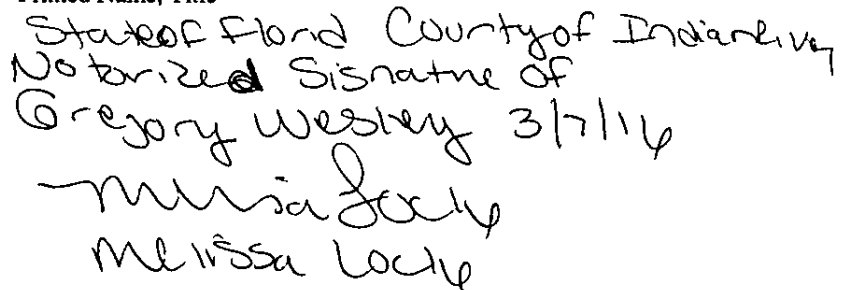 State of Florid County of Indian River
Notorized Signature of
Gregory Wesley 3/7/16
Melissa Locke
Melissa Locke